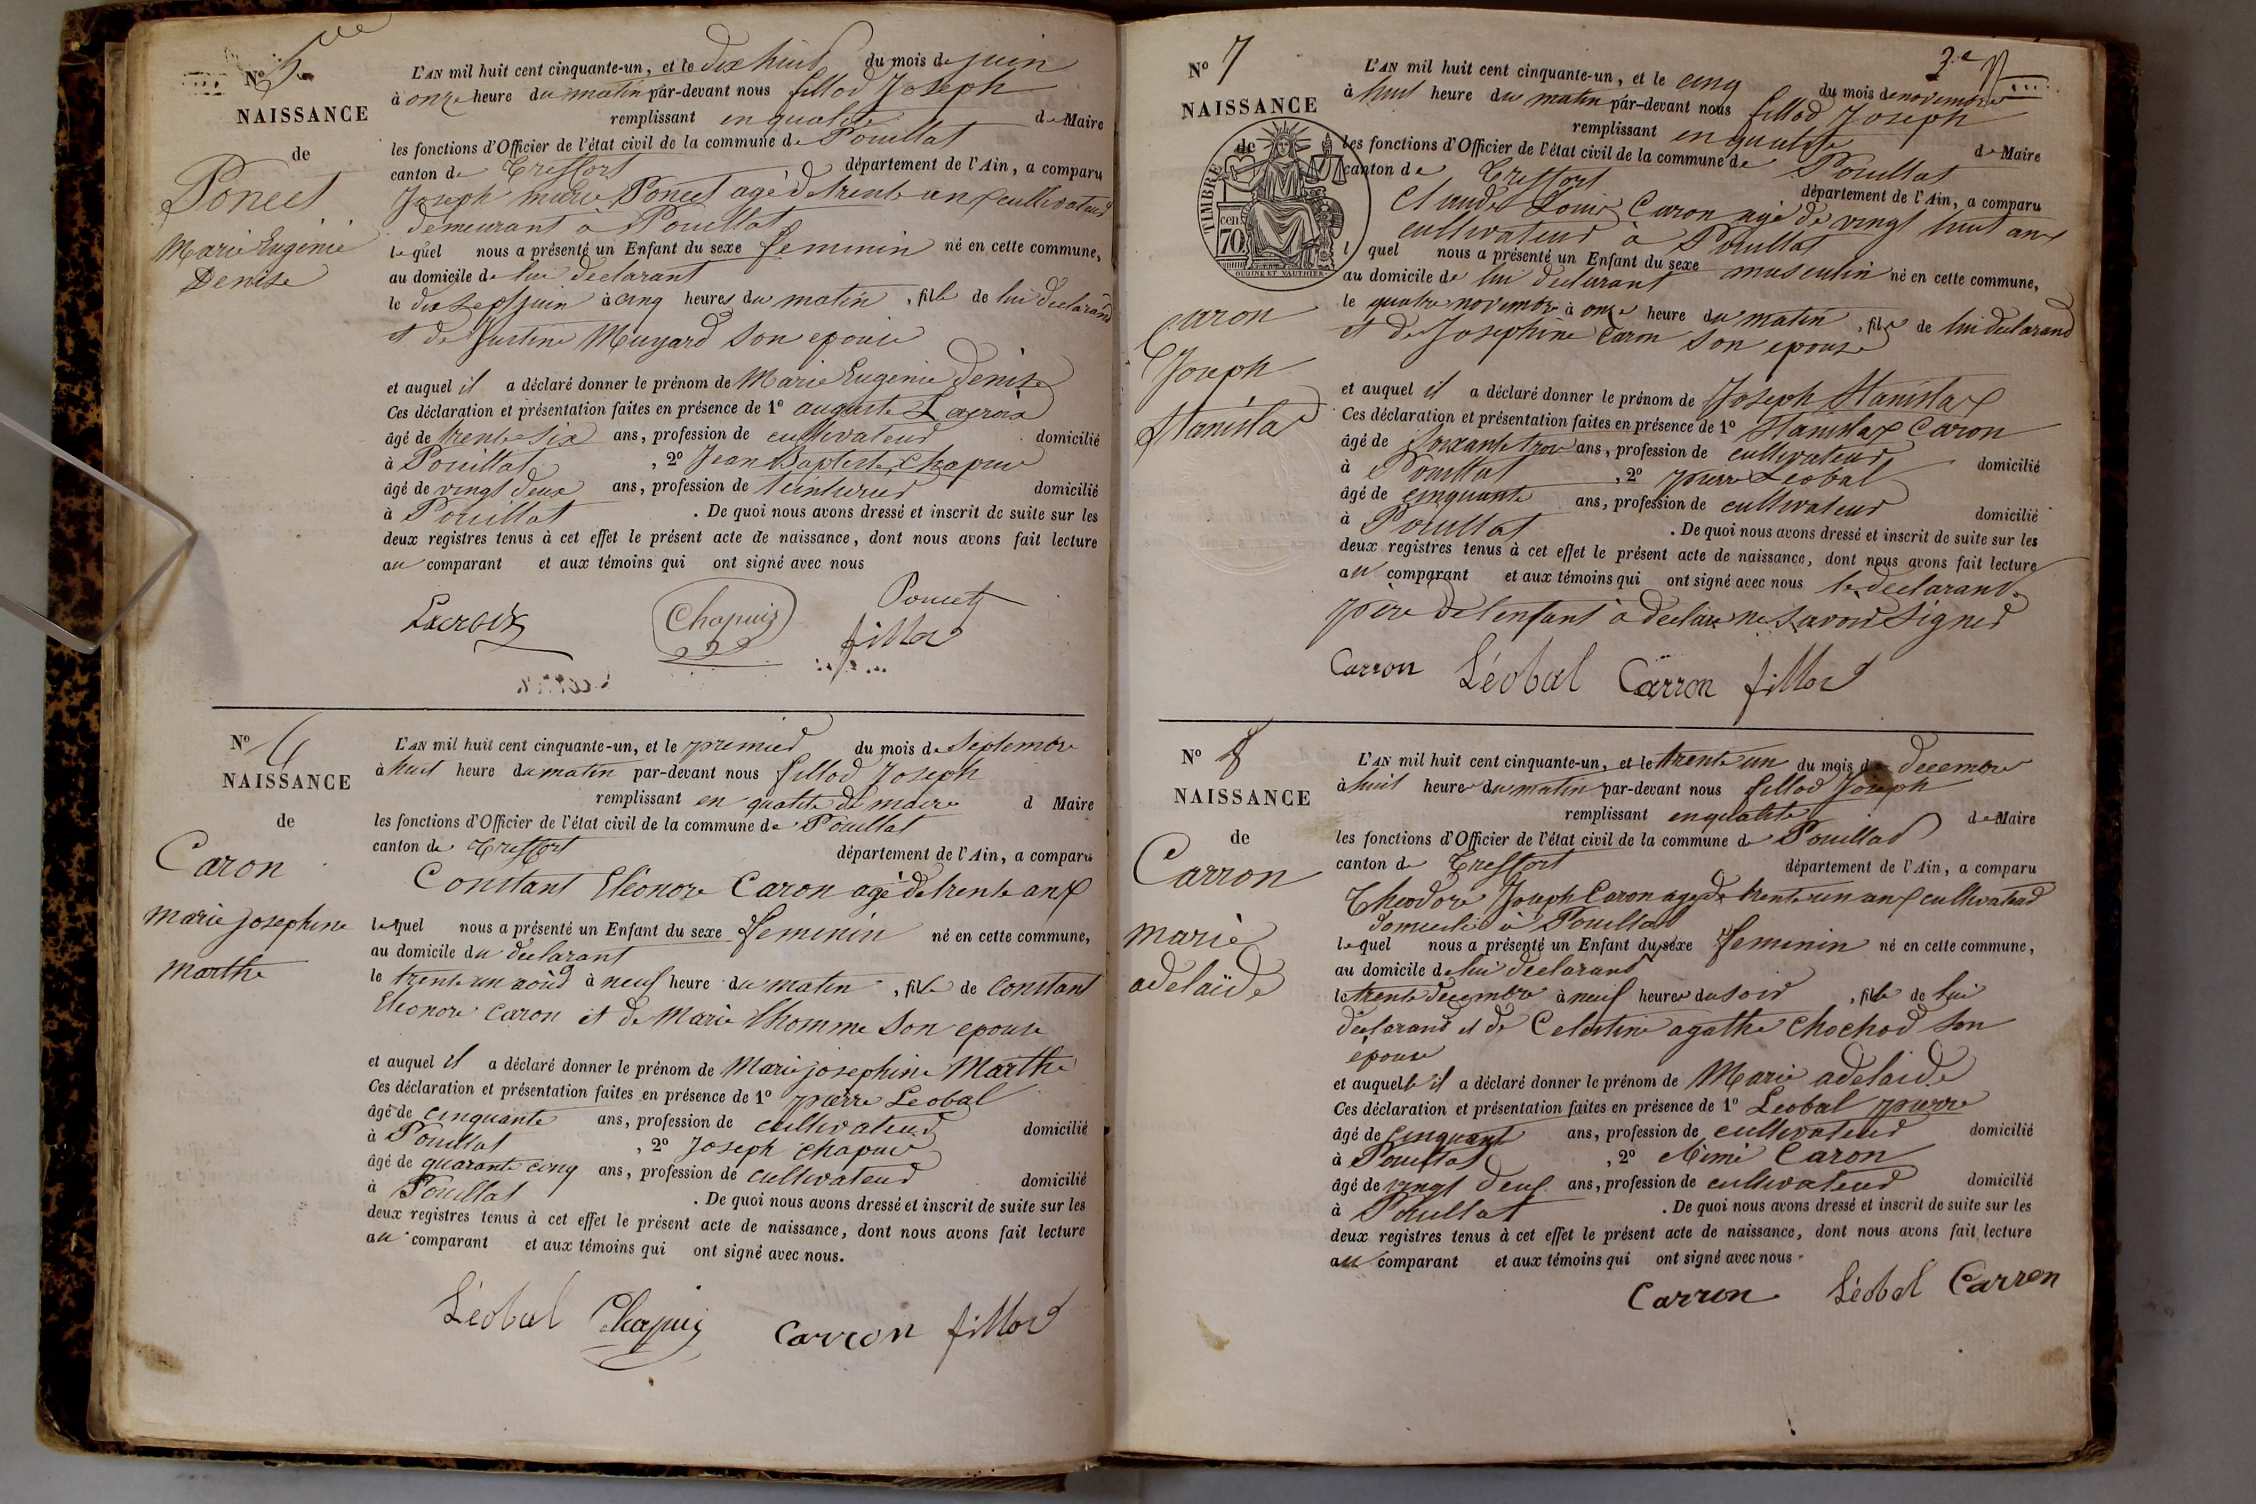 N° 5
NAISSANCE
de
Poncet
Marie Eugenie
Denise
L'AN mil huit cent cinquante-un, et le dix huit du mois de juin
à onze heure du matin par-devant nous fillod Joseph
remplissant en qualité de Maire
les fonctions d'Officier de l'état civil de la commune de Pouillat
canton de Treffort département de l'Ain, a comparu
Joseph marie Poncet agé de trente un cultivateur
demeurant à Pouillat
lequel nous a présenté un Enfant du sexe feminin né en cette commune,
au domicile de lui declarant
le dix sept juin à cinq heures du matin, fille de lui declarand
et de Justine Muyard son epouse
et auquel il a déclaré donner le prénom de Marie Eugenie denise
Ces déclaration et présentation faites en présence de 1° auguste Lacroix
âgé de trente six ans, profession de cultivateur domicilié
à Pouillat, 2° Jean Baptiste Chapuis
âgé de vingt deux ans, profession de teinturier domicilié
à Pouillat. De quoi nous avons dressé et inscrit de suite sur les
deux registres tenus à cet effet le présent acte de naissance, dont nous avons fait lecture
au comparant et aux témoins qui ont signé avec nous
Lacroix Chapuis Poncet
fillod
N° 6
NAISSANCE
de
Caron
marie josephine
marthe
L'AN mil huit cent cinquante-un, et le premier du mois de septembre
à huit heure du matin par-devant nous fillod Joseph
remplissant en qualité de maire d Maire
les fonctions d'Officier de l'état civil de la commune de Pouillat
canton de Treffort département de l'Ain, a comparu
Constant Eléonore Caron agé de trente ans
lequel nous a présenté un Enfant du sexe feminin né en cette commune,
au domicile du déclarant
le trente un août à neuf heure du matin, fille de constant
Eleonore caron et de Marie lhomme son epouse
et auquel il a déclaré donner le prénom de Marie josephine Marthe
Ces déclaration et présentation faites en présence de 1° pierre Leobal
âgé de cinquante ans, profession de cultivateur domicilié
à Pouillat, 2° Joseph chapuis
âgé de quarante cinq ans, profession de cultivateur domicilié
à Pouillat. De quoi nous avons dressé et inscrit de suite sur les
deux registres tenus à cet effet le présent acte de naissance, dont nous avons fait lecture
au comparant et aux témoins qui ont signé avec nous.
Léobal Chapuis Carron fillod
3e
N° 7
NAISSANCE
de
TIMBRE
cen
70
OUDINE ET VAUTHIER
Caron
Joseph
Stanislas
L'AN mil huit cent cinquante-un, et le cinq du mois de novembre
à huit heure du matin par-devant nous fillod Joseph
remplissant en qualité de Maire
les fonctions d'Officier de l'état civil de la commune de Pouillat
canton de Treffort département de l'Ain, a comparu
Claude Louis Caron agé de vingt huit ans
cultivateur à Pouillat
l quel nous a présenté un Enfant du sexe musculin né en cette commune,
au domicile de lui declarant
le quatre novembre à onze heure du matin, fils de lui declarand
et de Josephine caron son epouse
et auquel il a déclaré donner le prénom de Joseph Stanislas
Ces déclaration et présentation faites en présence de 1° Stanislas Caron
âgé de soixante trois ans, profession de cultivateur domicilié
à Pouillat, 2° pierre Leobal
âgé de cinquante ans, profession de cultivateur domicilié
à Pouillat. De quoi nous avons dressé et inscrit de suite sur les
deux registres tenus à cet effet le présent acte de naissance, dont nous avons fait lecture
au comparant et aux témoins qui ont signé avec nous le declarant
père de lenfant à declare ne savoir signer
Carron Léobal Carron fillod
N° 8
NAISSANCE
de
Carron
marie
adelaïde
L'AN mil huit cent cinquante-un, et le trente un du mois de decembre
à huit heures du matin par-devant nous fillod Joseph
remplissant en qualité de Maire
les fonctions d'Officier de l'état civil de la commune de Pouillat
canton de Treffort département de l'Ain, a comparu
Theodore Joseph Caron agé de trente un ans cultivateur
domicilié à Pouillat
lequel nous a présenté un Enfant du sexe feminin né en cette commune,
au domicile de lui declarand
le trente decembre à neuf heures du soir, fille de lui
declarand et de Celestine agathe chochod son
épouse
et auquelle il a déclaré donner le prénom de Marie adelaide
Ces déclaration et présentation faites en présence de 1° Leobal pierre
âgé de cinquant ans, profession de cultivateur domicilié
à Pouillat, 2° Rémi Caron
âgé de vingt deuf ans, profession de cultivateur domicilié
à Pouillat. De quoi nous avons dressé et inscrit de suite sur les
deux registres tenus à cet effet le présent acte de naissance, dont nous avons fait lecture
au comparant et aux témoins qui ont signé avec nous
Carron Léobal Carron